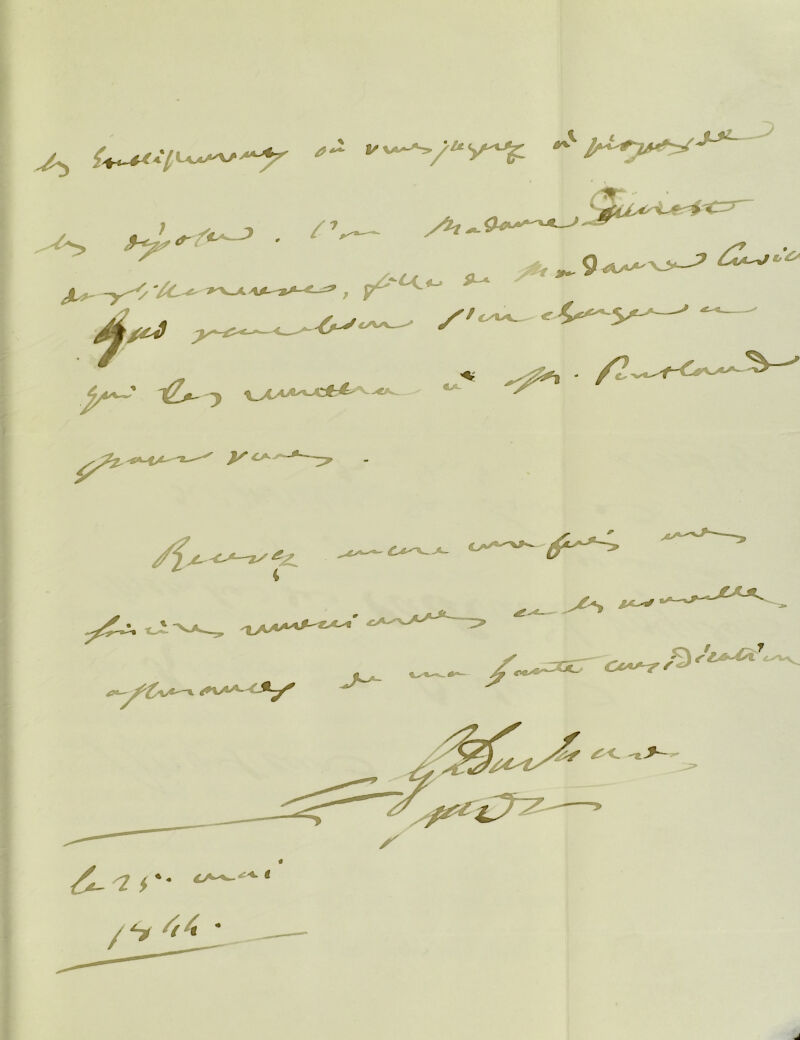 les établissements où vous jugerez à propos de
les déposer. C'est Madame
, fille de Madame Cuvier
que veut bien s'en charger et
qui les remettra à Mr. Pentland
pour vous.
Recevez encore une fois mes
sincères remerciemens et les nouvelles
assurances de ma haute considération
G Duvernoy
le 25. mai
1844.